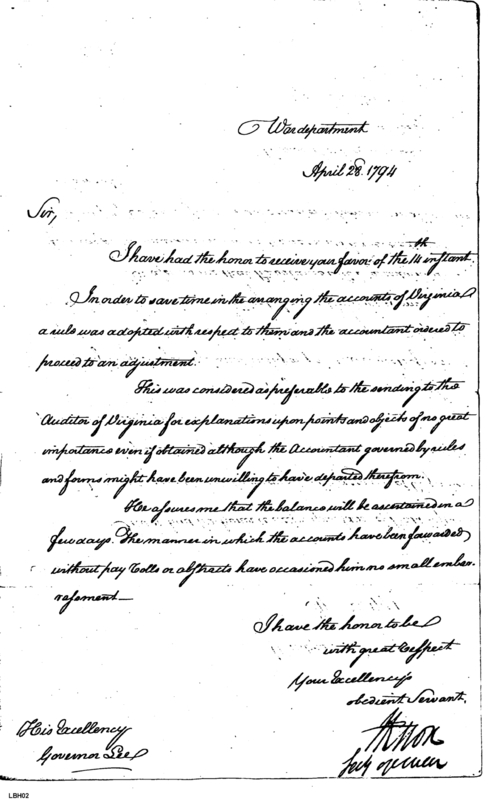 War department
April 28. 1794
Sir,
I have had the honor to receive your favor of the 14th instant.
In order to save time in the arranging the accounts of Virginia
a rule was adopted with respect to them and the accountant ordered to
proceed to an adjustment.
This was considered as preferable to the sending to the
Auditor of Virginia for explanations upon points and objects of no great
importance even if obtained although the Accountant governed by rules
and forms might have been unwilling to have departed therefrom.
He assures me that the balance will be ascertained in a
few days. The manner in which the accounts have been forwarded
without pay Rolls or abstracts have occasioned him no small embar-
rasment—
I have the honor to be
with great Respect
Your Excellencys
obedient Servant,
HKnox
Secy of war
His Excellency
Governor Lee
LBH02